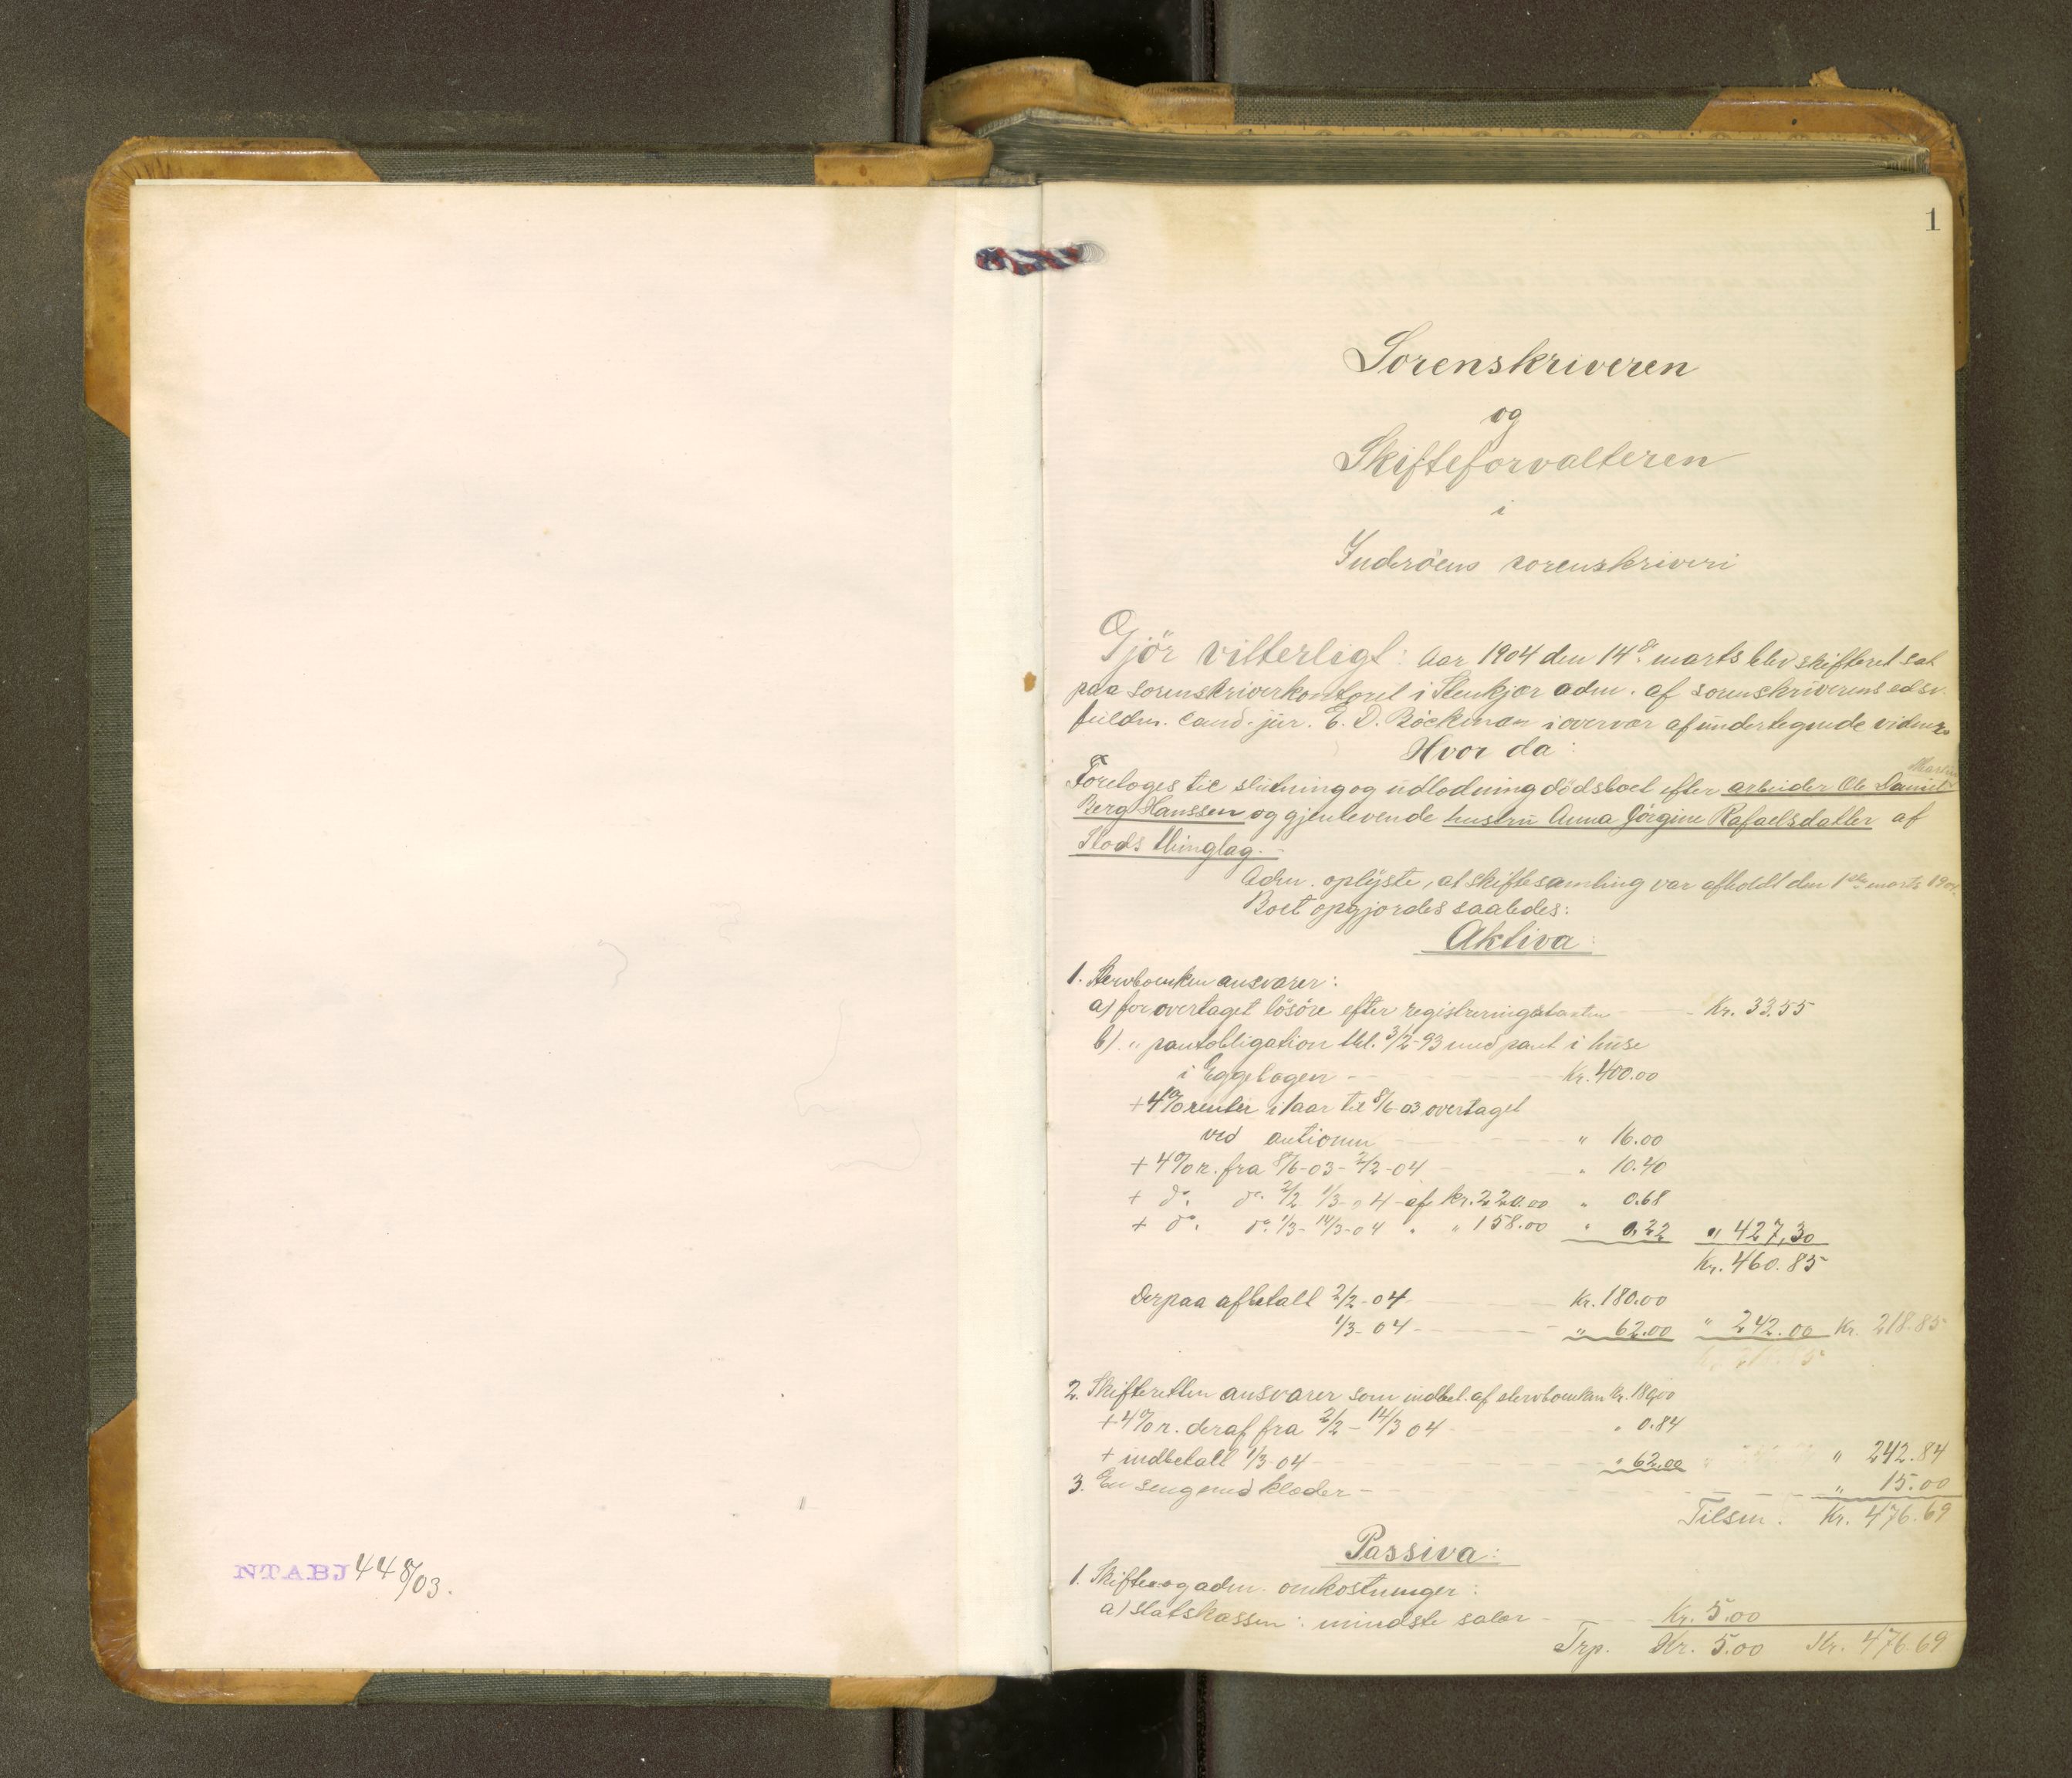 NTABJ 448/03.
1
Sorenskriveren
og
Skifteforvalteren
i
Inderöens sorenskriveri
Gjör vitterligt: Aar 1904 den 14de marts blev skifteret sat
paa sorenskriverkontoret i Stenkjær adm. af sorenskriverens edsv.
fuldm. cand. jur. E. D. Böckman i overvær af undertegnede vidner
Hvor da:
Martin
Foretoges til slutning og udlodning dödsboet efter arbeider Ole Daniel
Berg Hanssen og gjenlevende hustru Anna Görgine Rafaelsdatter af
Stods thinglag.-
Adm. oplyste, at skiftesamling var afholdt den 1ste marts 1904.
Boet opgjordes saaledes:
Aktiva:
1. Stervboenken ansvarer:
a) for overtaget lösöre efter registreringstaxten Kr. 33.55
b) " pantobligation thl. 3/2-93 med pant i huse
i Eggebogen - Kr. 400.00
+ 4% renter i 1 aar til 8/6 03 overtaget
ved auktionen " 16.00
+ 4% r. fra 8/6-03 - 2/2-04 - " 10.40
+ do. do. 2/2 1/3-04 - af kr. 220.00 " 0.68
+ do. do. 1/3 - 14/3-04 " " 158.00 " 0.22 " 427,30
Kr. 460.85
Derpaa afbetalt 2/2-04 Kr. 180.00
1/3-04 " 62.00 " 242.00 Kr. 218.85
2. Skifteretten ansvarer som indbet. af stervboenken Kr. 180.00
+ 4% r. deraf fra 2/2 - 14/3 04 " 0.84
+ indbetalt 1/3-04 " 62.00 " 242.84
3. En seng med klæder - " 15.00
Tilsm. Kr. 476.69
Passiva:
1. Skifte og adm. omkostninger:
a) statskassen: mindste salær - Kr. 5.00
Trp. Kr. 5.00 Kr. 476.69